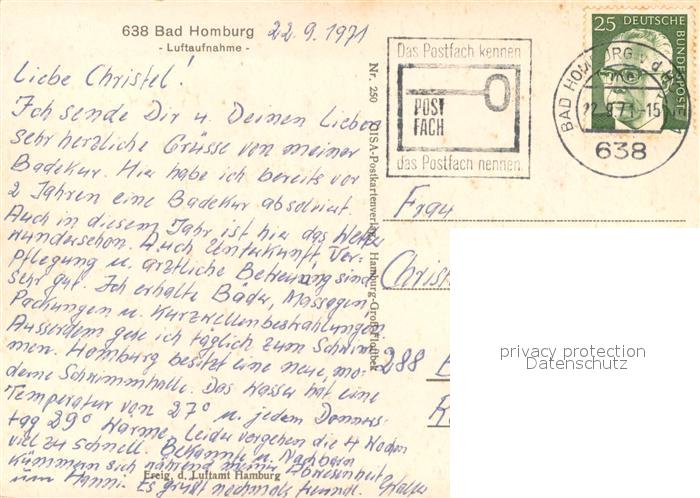 638 Bad Homburg
- Luftaufnahme -
22.9.1971
Liebe Christel!
Ich sende Dir u. Deinen Lieben
sehr herzliche Grüsse von meiner
Badekur. Hier habe ich bereits vor
2 Jahren eine Badekur absolviert.
Auch in diesem Jahr ist hier das Wetter
wunderschön. Auch Unterkunft, Ver-
pflegung u. ärztliche Betreuung sind
sehr gut. Ich erhalte Bäder, Massagen,
Packungen u. Kurzwellenbestrahlungen
Ausserdem gehe ich täglich zum Schwim-
men. Homburg besitzt eine neue, mo-
derne Schwimmhalle. Das Wasser hat eine
Temperatur von 27° u. jedem Donners-
tag 29° Wärme. Leider vergehen die 4 Wochen
viel zu schnell. Bekannte u. Nachbarn
kümmern sich während meiner Abwesenheit
um Hanni. Es grüßt nochmals freundl. Walter
Freig. d. Luftamt Hamburg
Nr. 250 GISA-Postkartenverlag, Hamburg-Groß Flottbek
Das Postfach kennen
POST
FACH
das Postfach nennen
25 DEUTSCHE
BUNDESPOST
BAD HOMBURG v d H
22.9.71-15
638
Frau
Christ
288
privacy protection
Datenschutz